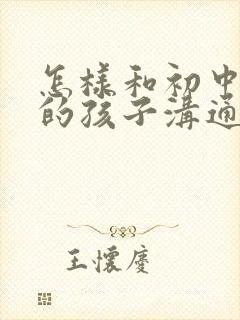 怎樣和初中
的孩子溝通
王懷慶